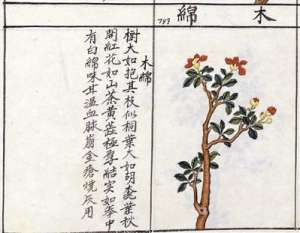 木綿
793
木綿
樹大如抱其枝似桐葉大如胡桃葉秋
開紅花如山茶黃蕊極厚結實如拳中
有白綿味甘溫血崩金瘡燒灰用